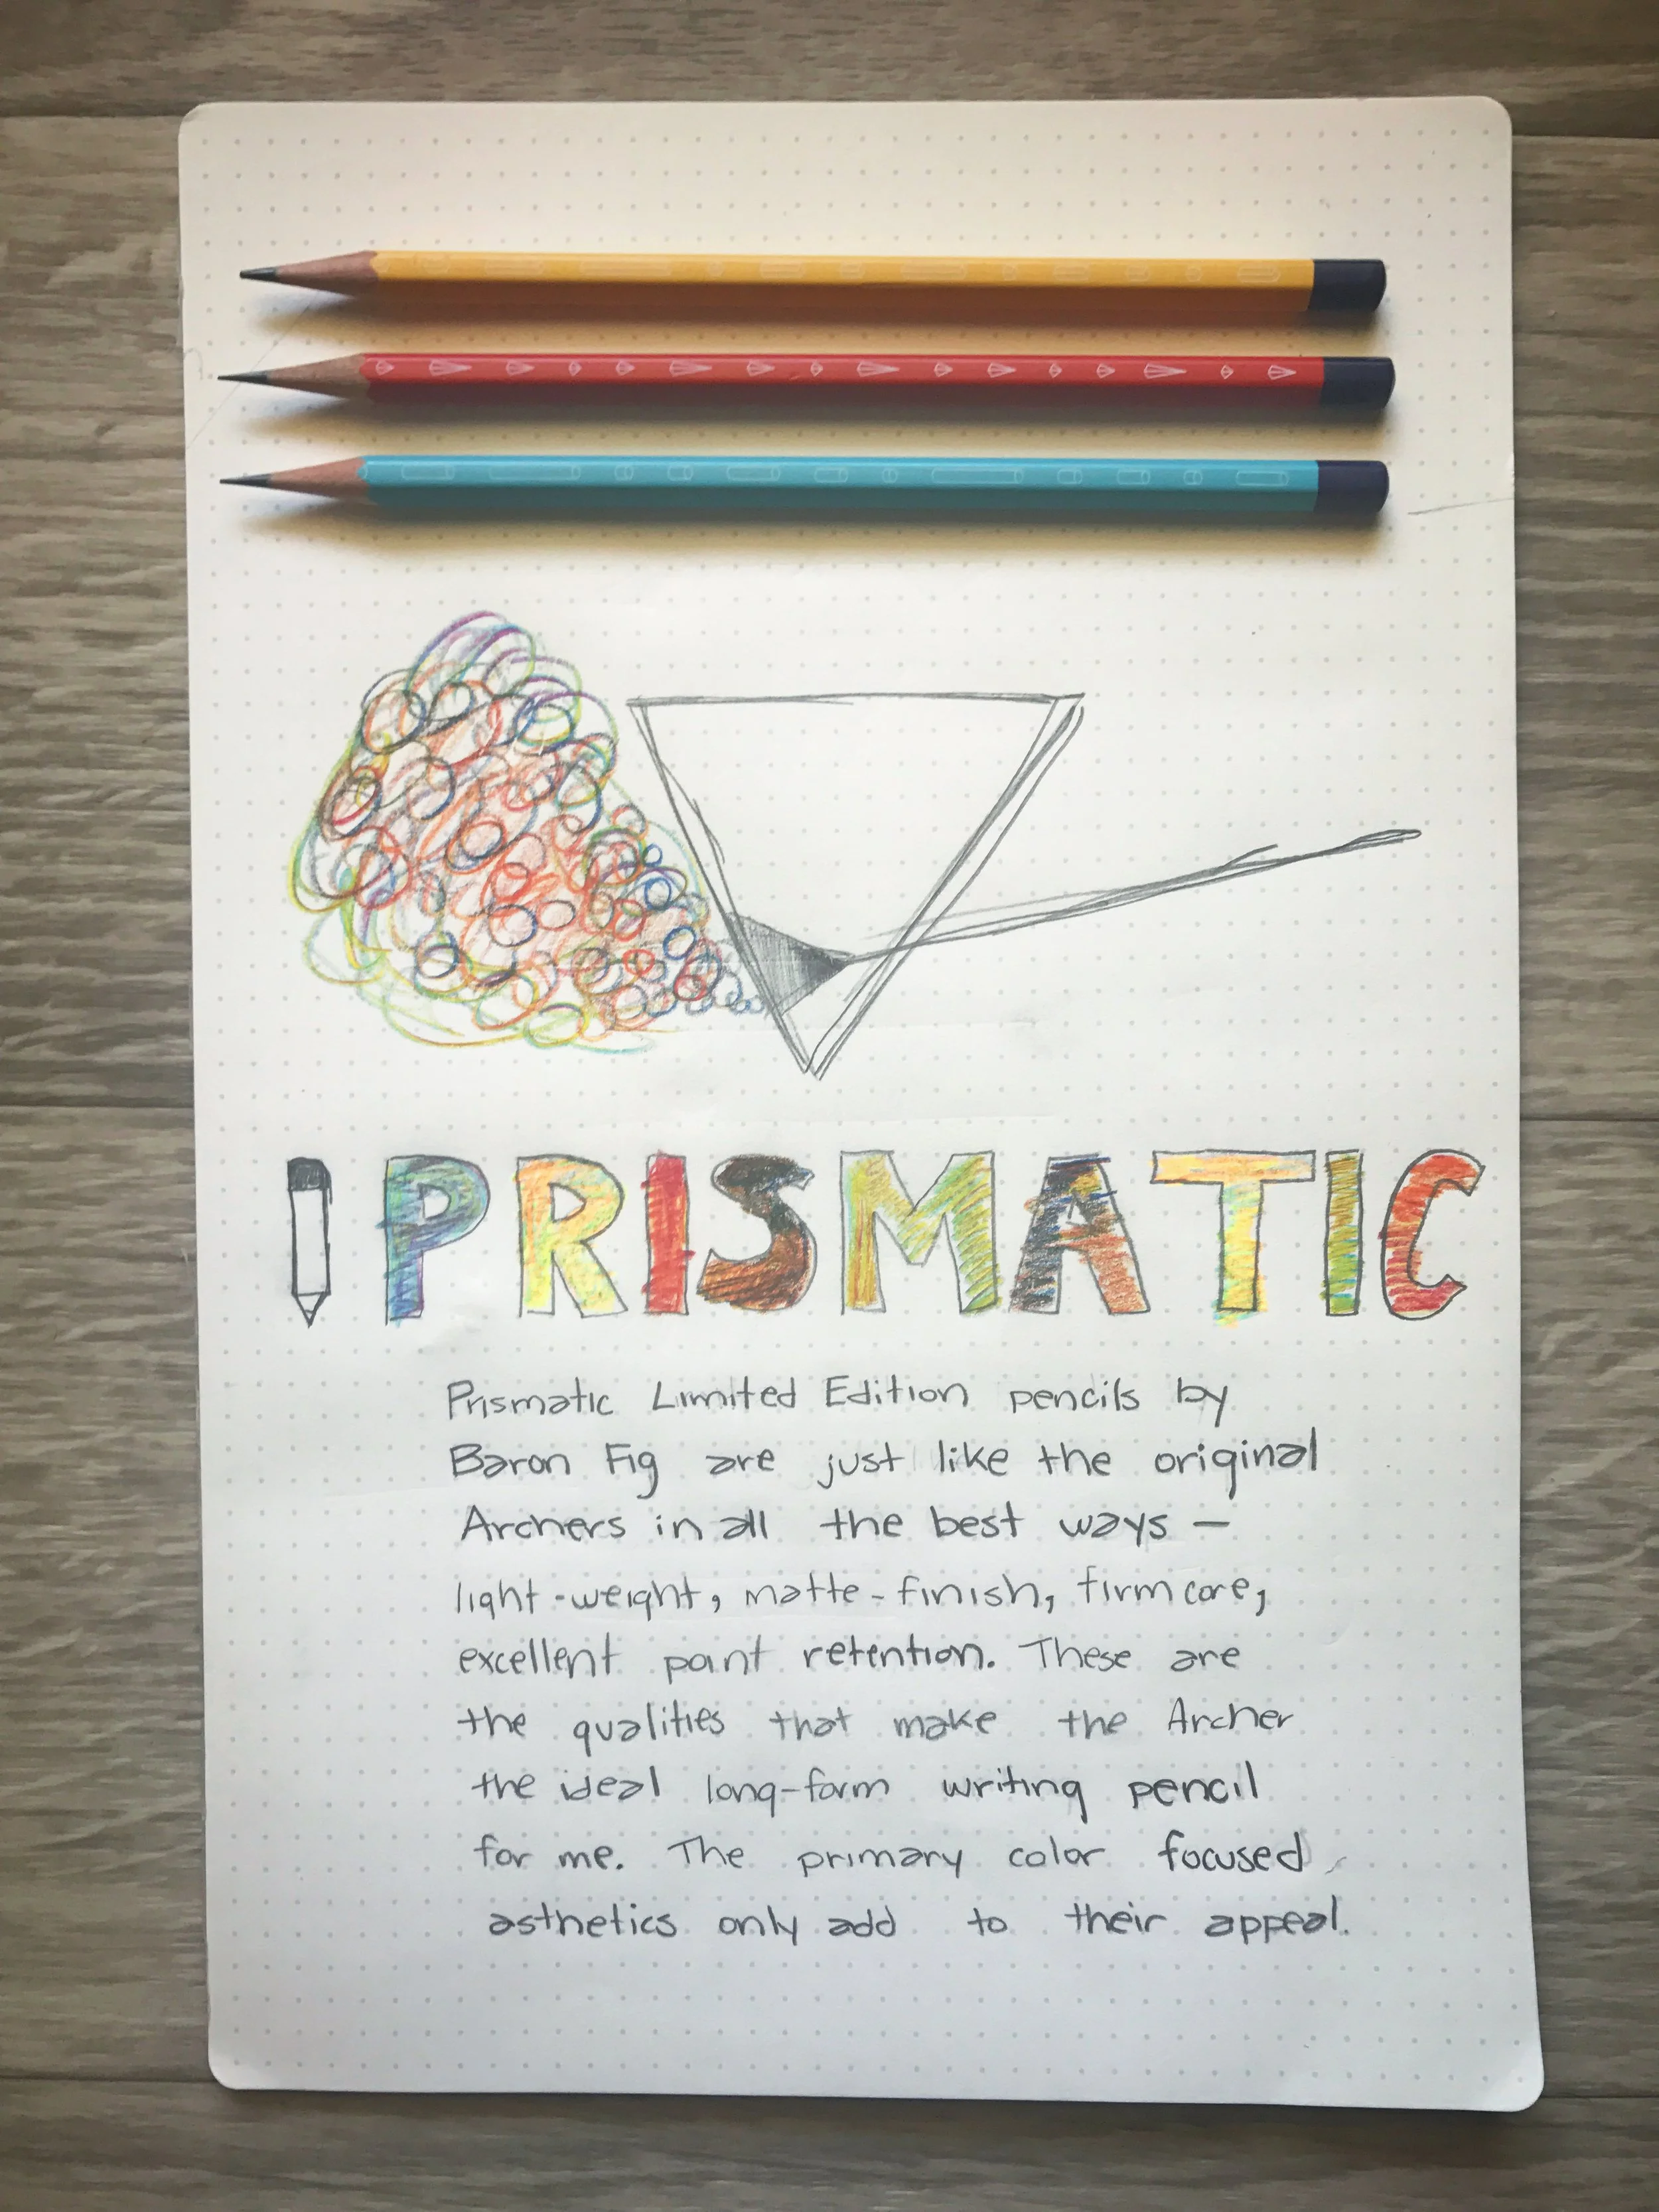 PRISMATIC
Prismatic Limited Edition pencils by
Baron Fig are just like the original
Archers in all the best ways —
light-weight, matte-finish, firm core,
excellent point retention. These are
the qualities that make the Archer
the ideal long-form writing pencil
for me. The primary color focused
asthetics only add to their appeal.